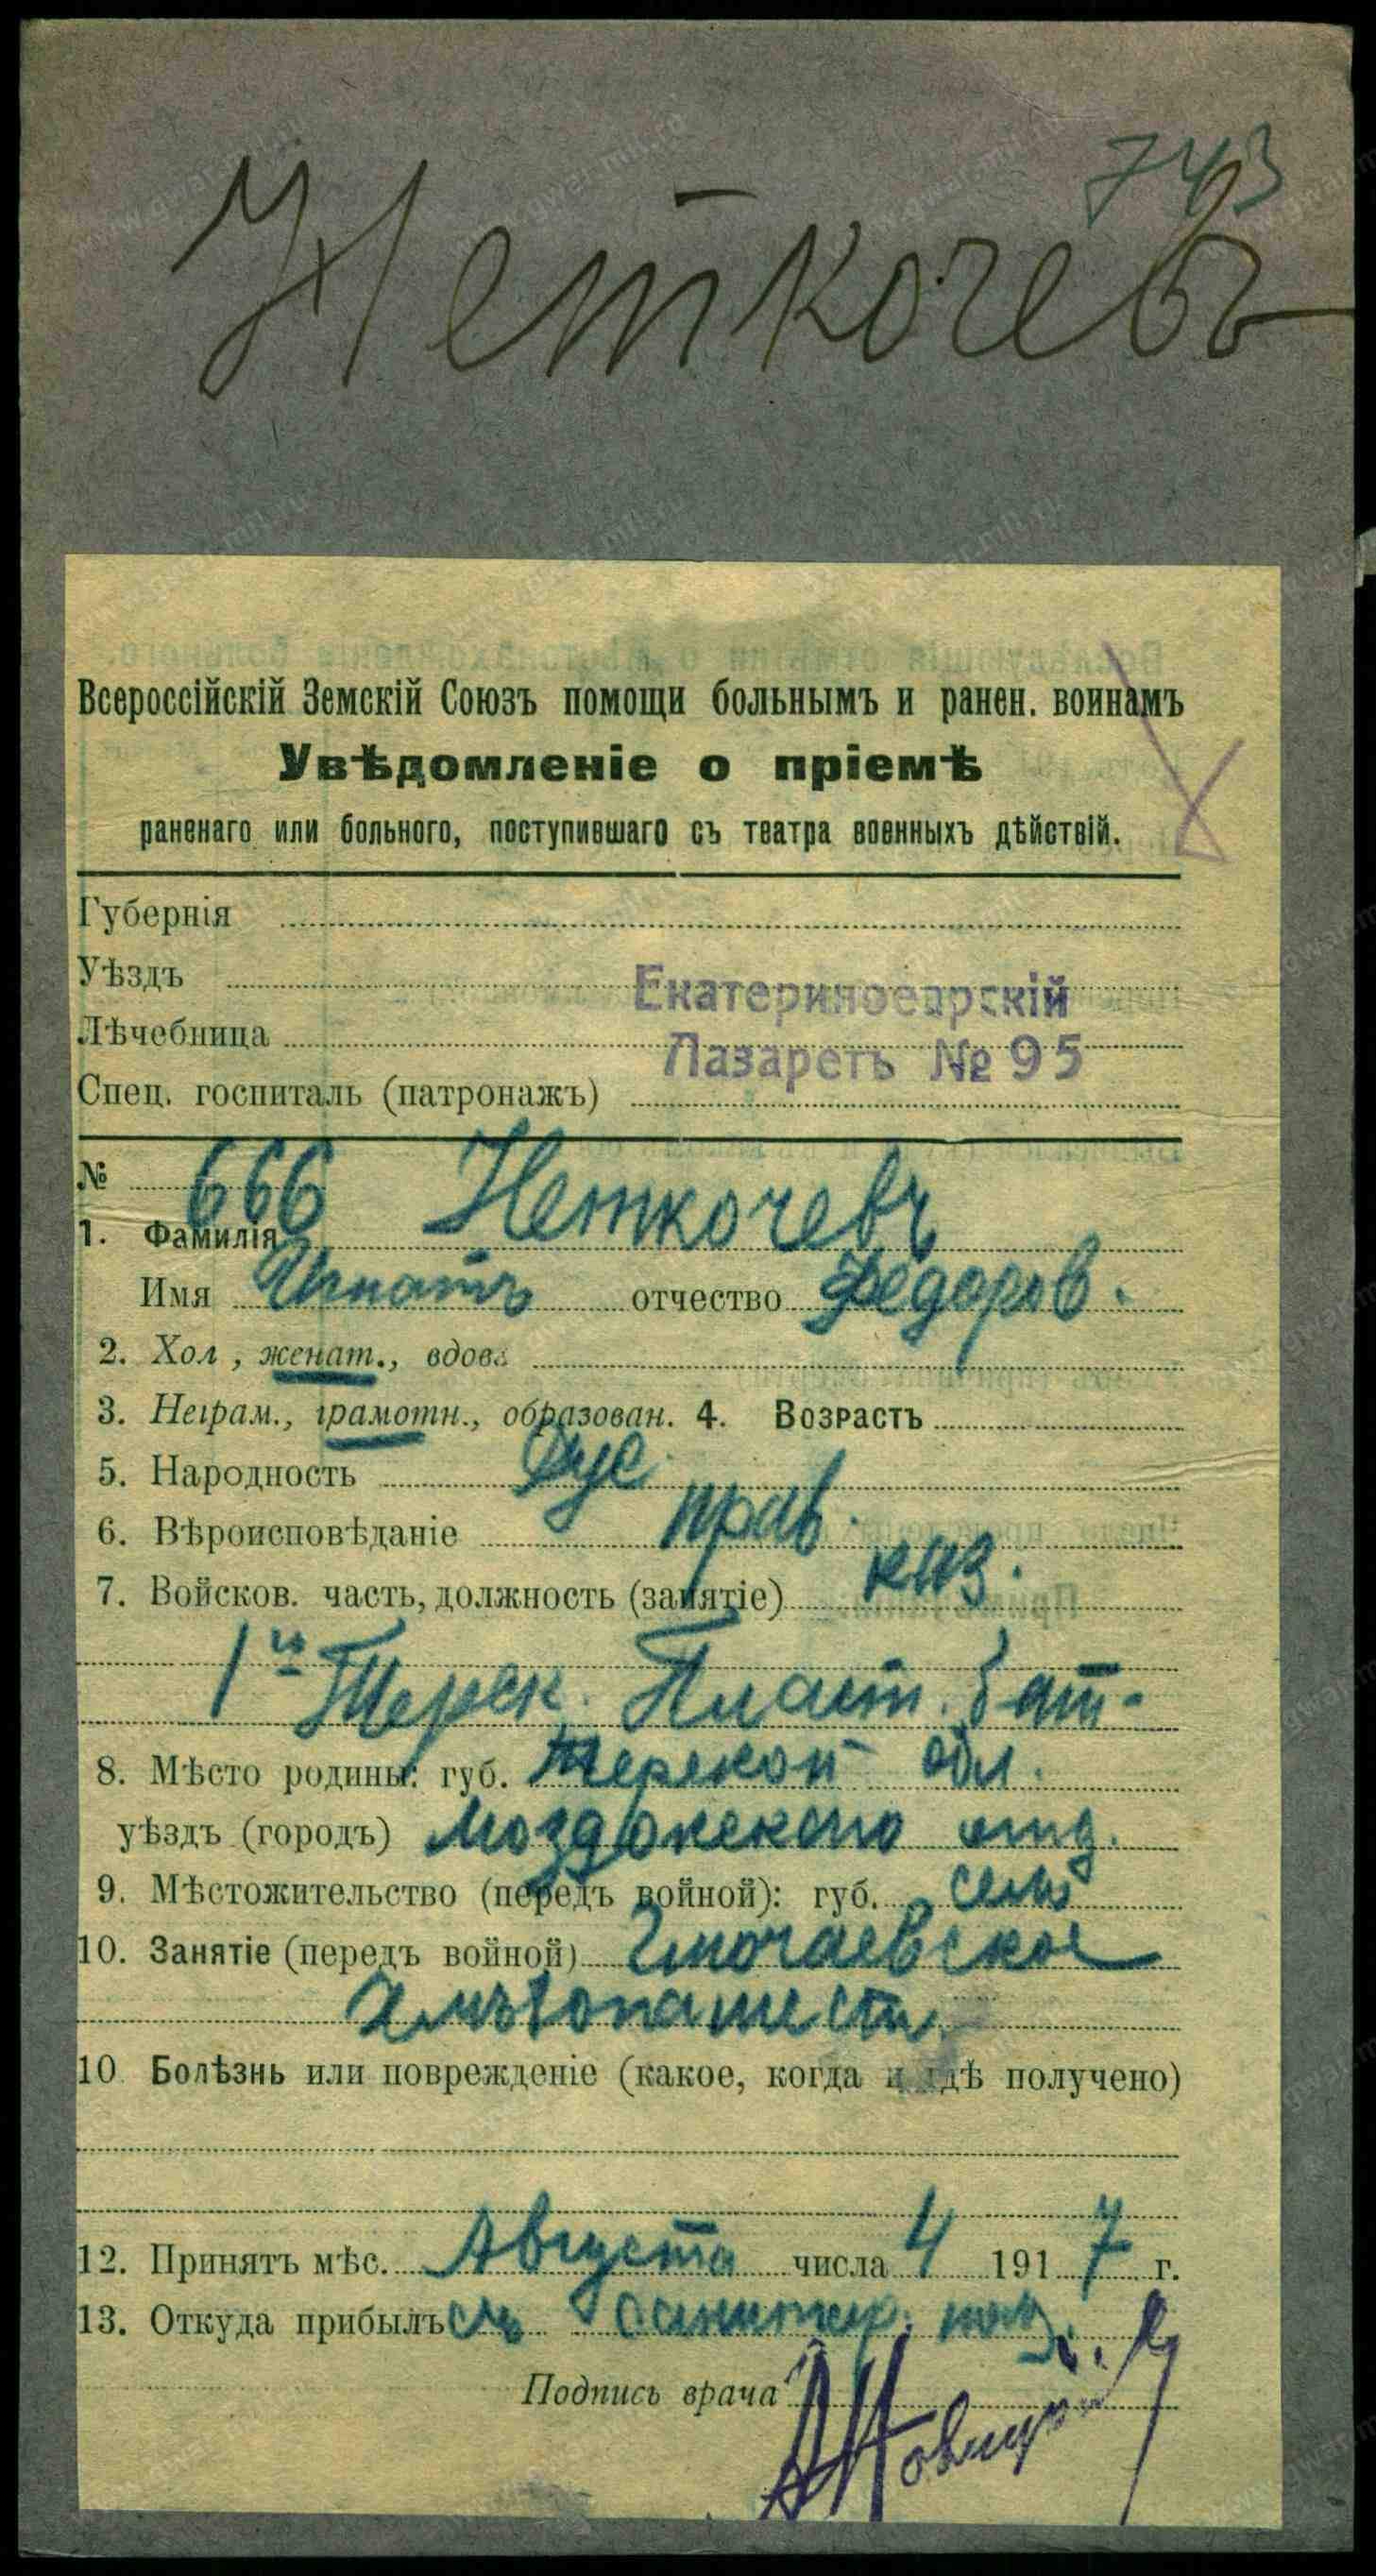 743
Неткочевъ
Всероссійскій Земскій Союзъ помощи больнымъ и ранен. воинамъ
Увѣдомленіе о пріемѣ
раненаго или больного, поступившаго съ театра военныхъ дѣйствій.
Губернія
Уѣздъ
Екатеринодарскій
Лѣчебница
Лазаретъ № 95
Спец. госпиталь (патронажъ)
№ 666
1. Фамилія Неткочевъ
Имя Игнатъ отчество Федоров.
2. Хол, женат., вдовъ
3. Неграм., грамотн., образован. 4. Возрастъ
5. Народность Рус.
6. Вѣроисповѣданіе прав.
7. Войсков. часть, должность (занятіе) каз.
1й Терск. Пласт. бат.
8. Мѣсто родины: губ. Терской обл.
уѣздъ (городъ) Моздокскаго отд.
9. Мѣстожительство (передъ войной): губ. село
10. Занятіе (передъ войной)
Хлѣбопашест.
10. Болѣзнь или поврежденіе (какое, когда и гдѣ получено)
12. Принятъ мѣс. Августа числа 4 1917 г.
13. Откуда прибылъ съ санитар. поѣз.
Подпись врача